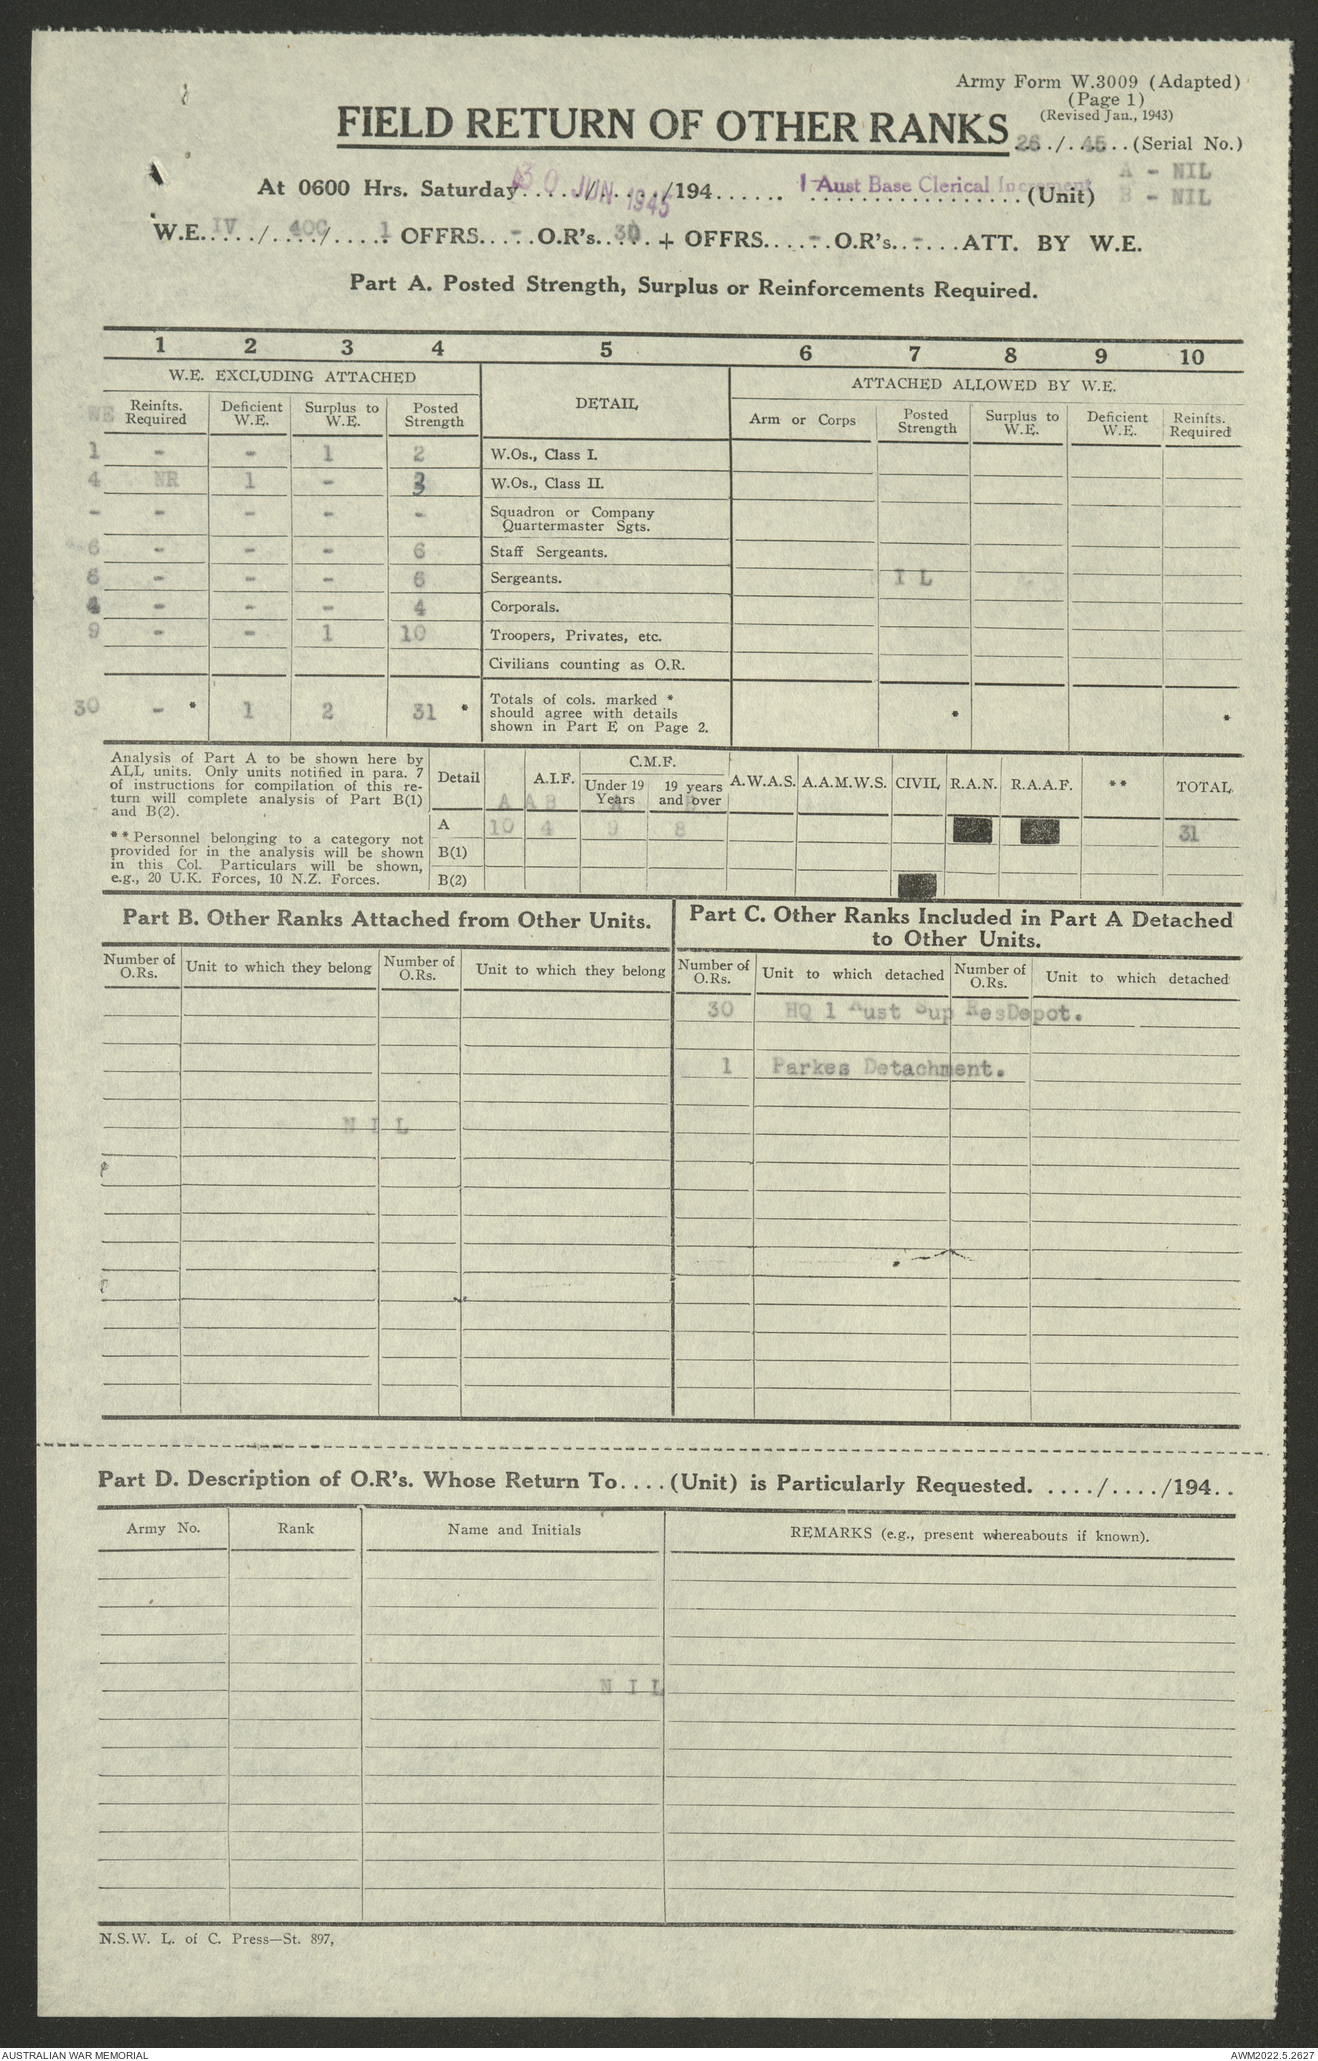 Army Form W.3009 (Adapted)
(Page 1)
(Revised Jan., 1943)
FIELD RETURN OF OTHER RANKS
26 / 45 (Serial No.)
A - NIL
B - NIL
At 0600 Hrs. Saturday 30 JUN 1945 /194...... 1 Aust Base Clerical Increment (Unit)
W.E. IV / 40C / 1 OFFRS. - O.R's. 30 + OFFRS. - O.R's. - ATT. BY W.E.
Part A. Posted Strength, Surplus or Reinforcements Required.
1 2 3 4 5 6 7 8 9 10
W.E. EXCLUDING ATTACHED DETAIL ATTACHED ALLOWED BY W.E.
WE Reinfts. Required Deficient W.E. Surplus to W.E. Posted Strength Arm or Corps Posted Strength Surplus to W.E. Deficient W.E. Reinfts. Required
1 - - 1 2 W.Os., Class I.
4 NR 1 - 3 W.Os., Class II.
- - - - - Squadron or Company Quartermaster Sgts.
6 - - - 6 Staff Sergeants.
6 - - - 6 Sergeants. N I L
4 - - - 4 Corporals.
9 - - 1 10 Troopers, Privates, etc.
Civilians counting as O.R.
30 - * 1 2 31 * Totals of cols. marked * * *
should agree with details
shown in Part E on Page 2.
Analysis of Part A to be shown here by
ALL units. Only units notified in para. 7
of instructions for compilation of this re-
turn will complete analysis of Part B(1)
and B(2).
** Personnel belonging to a category not
provided for in the analysis will be shown
in this Col. Particulars will be shown,
e.g., 20 U.K. Forces, 10 N.Z. Forces.
Detail A.I.F. C.M.F. Under 19 Years 19 years and over A.W.A.S. A.A.M.W.S. CIVIL R.A.N. R.A.A.F. ** TOTAL
A A B A B
A 10 4 9 8 31
B(1)
B(2)
Part B. Other Ranks Attached from Other Units.
Number of O.Rs. Unit to which they belong Number of O.Rs. Unit to which they belong
N I L
Part C. Other Ranks Included in Part A Detached
to Other Units.
Number of O.Rs. Unit to which detached Number of O.Rs. Unit to which detached
30 HQ 1 Aust Sup ResDepot.
1 Parkes Detachment.
Part D. Description of O.R's. Whose Return To....(Unit) is Particularly Requested. ..../..../194..
Army No. Rank Name and Initials REMARKS (e.g., present whereabouts if known).
N I L
N.S.W. L. of C. Press—St. 897,
AUSTRALIAN WAR MEMORIAL AWM2022.5.2627